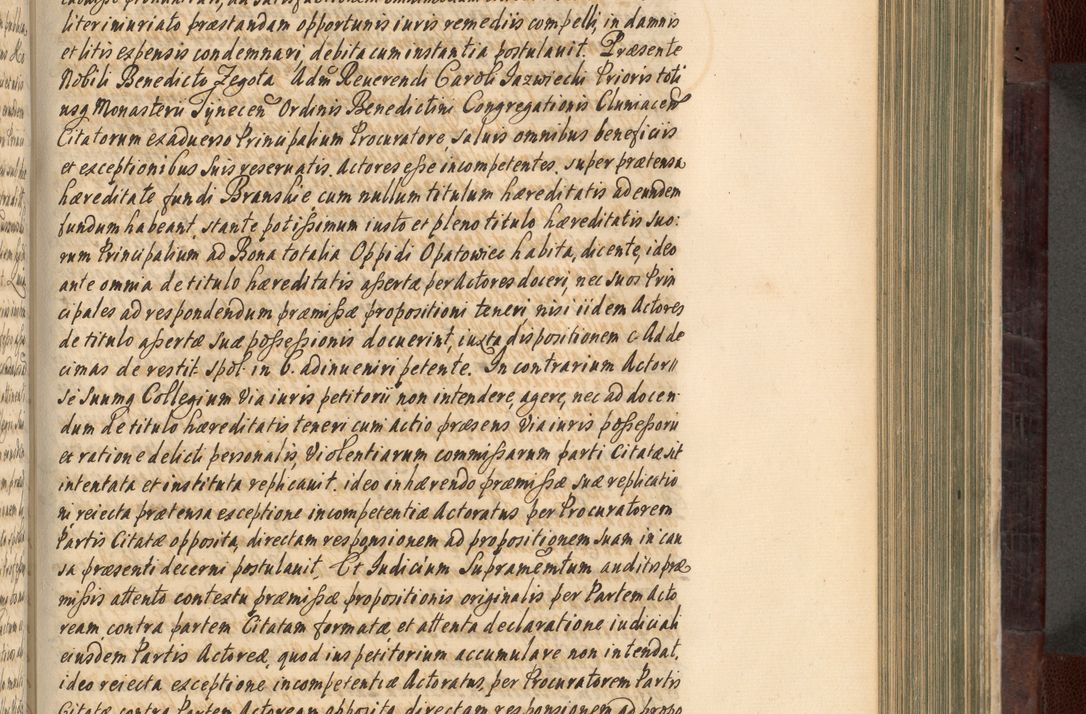 liter iniuriato præstandam opportunis iuris remediis compelli, in damnis
et litis expensis condemnari, debita cum instantia postulauit. Præsente
Nobili Benedicto Zegota Adm Reuerendi Caroli Jazwiecki Prioris toti
usq Monasterii Tynecen Ordinis Benedictini Congregationis Cluniacen
Citatorum ex aduerso Principalium Procuratore, saluis omnibus beneficiis
et exceptionibus suis reseruatis. Actores eſse incompetentes. super prætensa
hæreditate fundi Branskie cum nullum titulum hæreditatis ad eundem
fundum habeant, stante potiſsimum iusto et pleno titulo hæreditatis suo:
rum Principalium ad Bona totalia Oppidi Opatowiec habita, dicente, ideo
ante omnia de titulo hæreditatis aſsertæ per Actores doceri, nec suos Prin
cipales ad respondendum præmiſsæ propositioni teneri, nisi iidem Actores
de titulo aſsertæ suæ poſseſsionis docuerint, iuxta dispositionem C. Ad de
cimas de restit. spol. in 6. adinueniri petente. In contrarium Actor
se suumq Collegium via iuris petitorii non intendere, agere, nec ad docen
dum de titulo hæreditatis teneri cum actio præsens via iuris poſseſsorii
et ratione delicti personalis, violentiarum commiſsarum parti Citatæ sit
intentata et instituta replicauit. ideo inhærendo præmiſsæ suæ replicatio
ni reiecta prætensa exceptione incompetentiæ Actoratus per Procuratorem
Partis Citatæ opposita, directam responsionem ad propositionem suam in cau
sa præsenti decerni postulauit, Et Judicium Supramentum auditis præ
miſsis attento contextu præmiſsæ propositionis originalis per Partem Acto
ream contra partem Citatam formatæ, et attenta declaratione iudiciali
eiusdem Partis Actoreæ, quod ius petitorium accumulare non intendat,
ideo reiecta exceptione incompetentiæ Actoratus, per Procuratorem Partis
Citatæ contra Partem Actoream opposita, directam responsionem ad propo